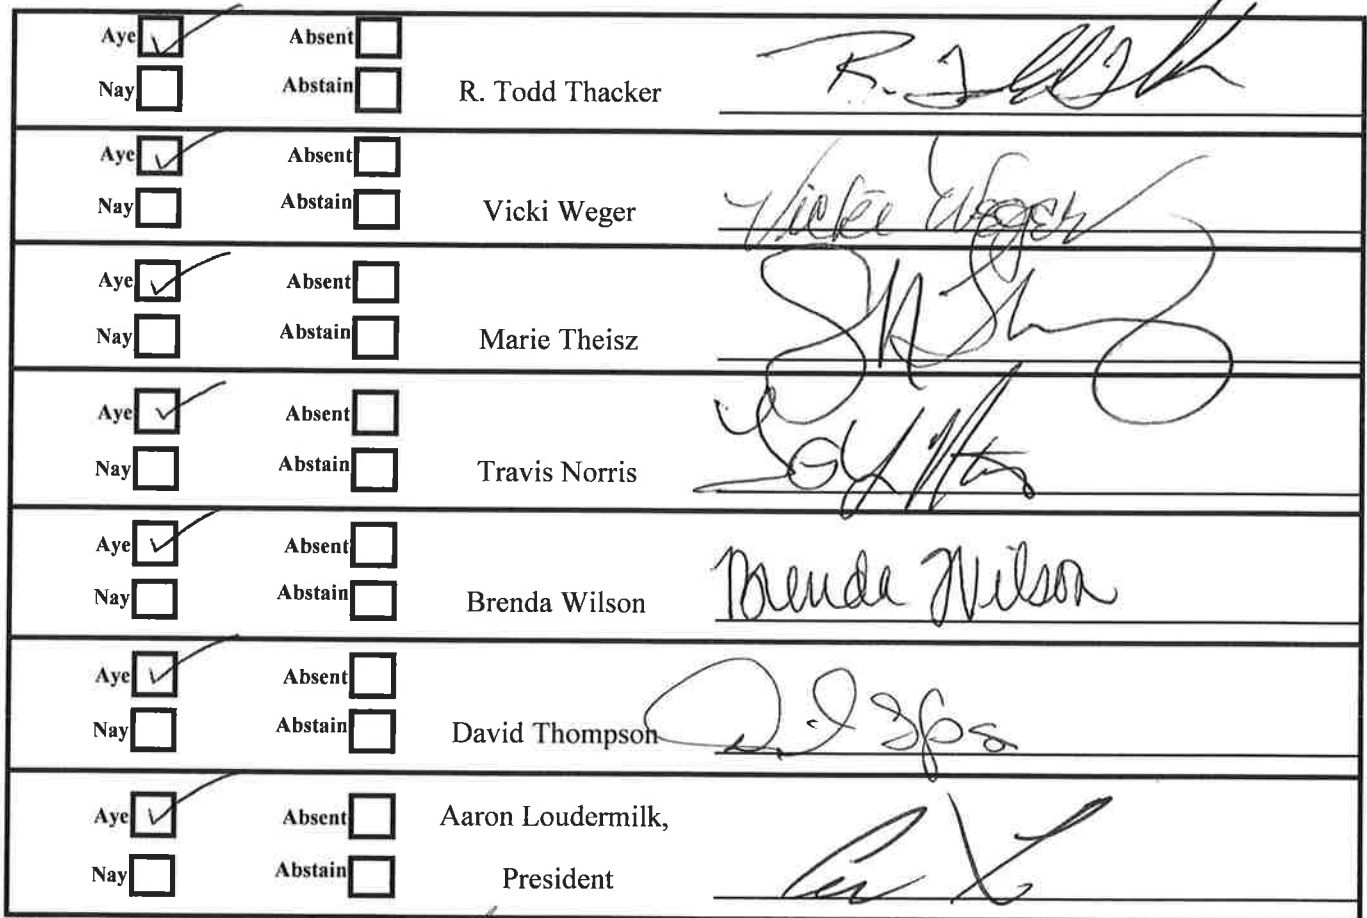 Aye Absent
Nay Abstain R. Todd Thacker R. Todd Thacker
Aye Absent
Nay Abstain Vicki Weger Vickie Weger
Aye Absent
Nay Abstain Marie Theisz
Aye Absent
Nay Abstain Travis Norris
Aye Absent
Nay Abstain Brenda Wilson Brenda Wilson
Aye Absent
Nay Abstain David Thompson
Aye Absent Aaron Loudermilk,
Nay Abstain President